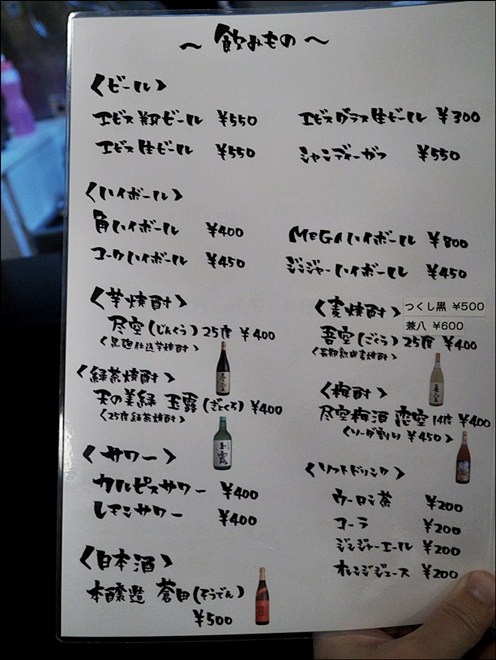 ～ 飲みもの ～
〈ビール〉
エビス瓶ビール ¥550
エビスグラス生ビール ¥300
エビス生ビール ¥550
シャンディーガフ ¥550
〈ハイボール〉
角ハイボール ¥400
MEGAハイボール ¥800
コークハイボール ¥450
ジンジャーハイボール ¥450
〈芋焼酎〉
尽空(じんくう)25度 ¥400
〈黒麹仕込芋焼酎〉
〈麦焼酎〉
つくし黒 ¥500
兼八 ¥600
吾空(ごくう)25度 ¥400
〈長期熟成麦焼酎〉
〈緑茶焼酎〉
天の美緑 玉露(ぎょくろ) ¥400
〈25度緑茶焼酎〉
〈梅酎〉
尽空梅酒 恋空 14度 ¥400
〈ソーダ割り ¥450〉
〈サワー〉
カルピスサワー ¥400
レモンサワー ¥400
〈ソフトドリンク〉
ウーロン茶 ¥200
コーラ ¥200
ジンジャーエール ¥200
オレンジジュース ¥200
〈日本酒〉
本醸造 蒼田(そうでん)
¥500